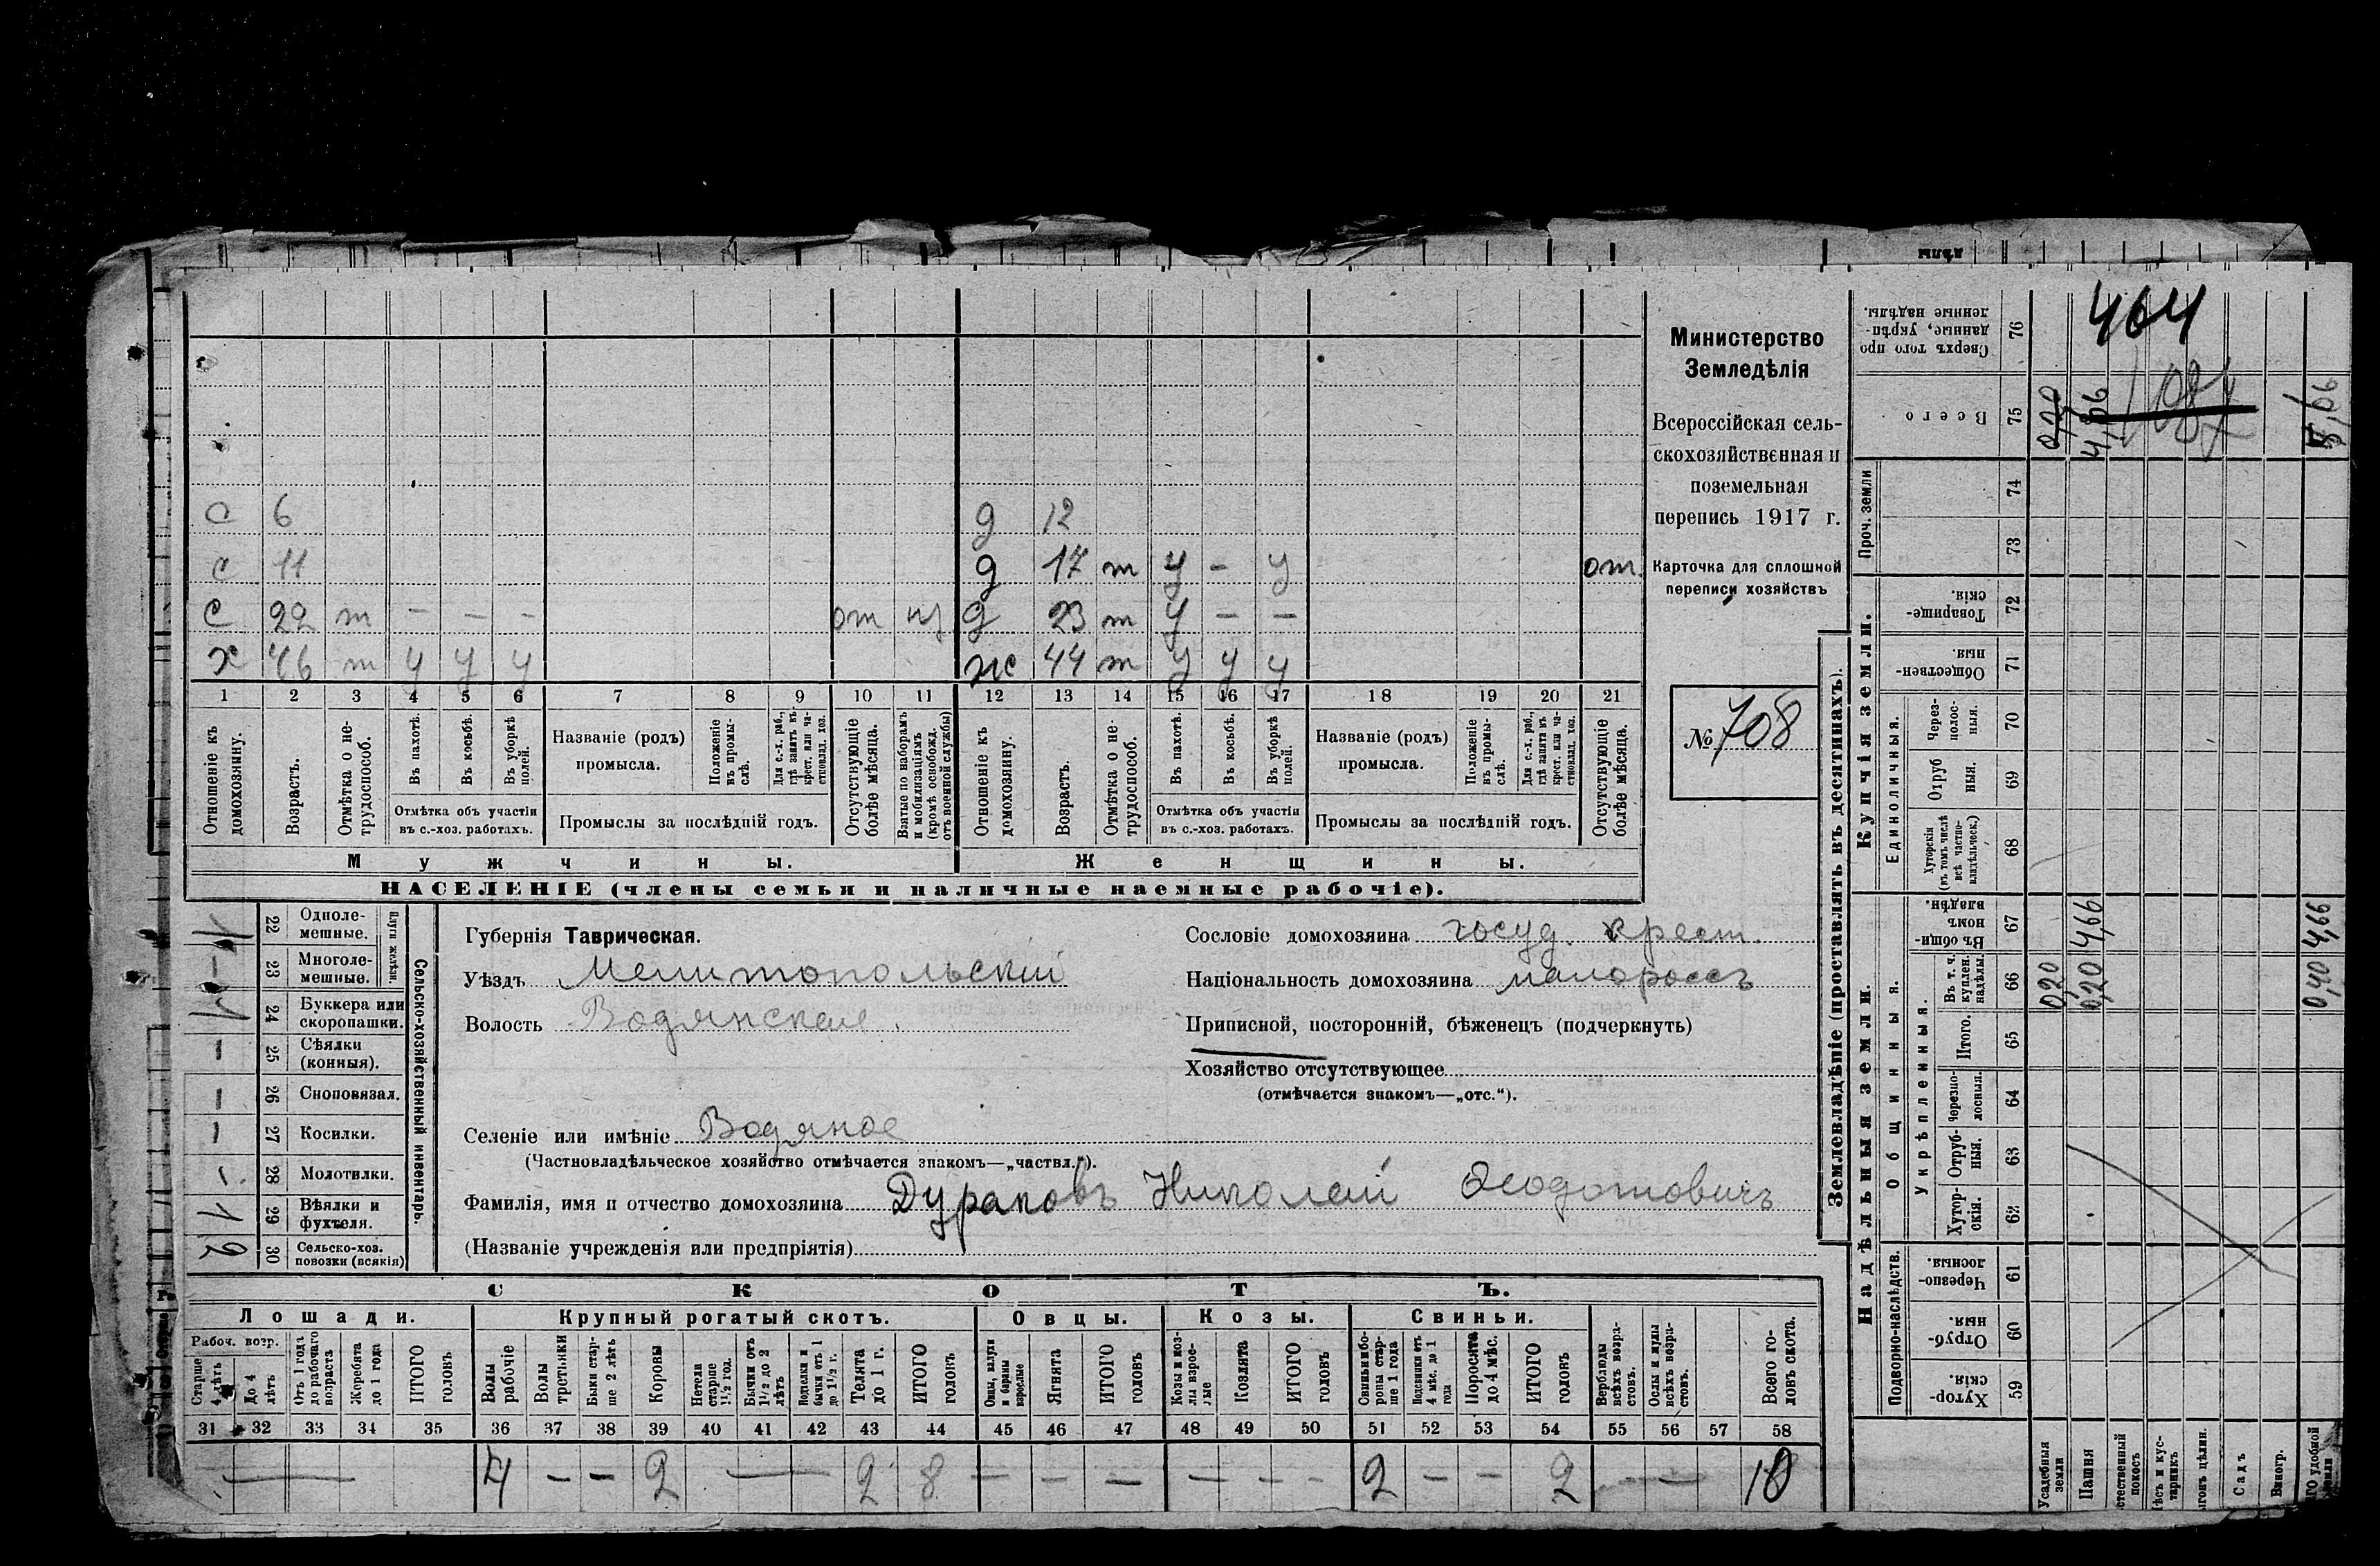 Министерство
Земледѣлія
Всероссійская сель-
скохозяйственная и
поземельная
перепись 1917 г.
Карточка для сплошной
переписи хозяйствъ
№ 708
с 6
д 12
с 11
д 17 т у – у от.
с 22 т – – – от
д 23 т у – –
х 46 т у у у
ж 44 т у у у
1 2 3 4 5 6 7 8 9 10 11 12 13 14 15 16 17 18 19 20 21
Отношеніе къ домохозяину.
Возрастъ.
Отмѣтка о не-трудоспособ.
Въ пахотѣ.
Въ косьбѣ.
Въ уборкѣ полей.
Отмѣтка объ участіи
въ с.-хоз. работахъ.
Названіе (родъ)
промысла.
Положеніе въ промы-слѣ.
Для с.-х. раб., гдѣ занятъ въ крест. или ча-стновлад. хоз.
Промыслы за послѣдній годъ.
Отсутствующіе болѣе мѣсяца.
Взятые по наборамъ и мобилизаціямъ (кромѣ освобожд. отъ военной службы)
Отношеніе къ домохозяину.
Возрастъ.
Отмѣтка о не-трудоспособ.
Въ пахотѣ.
Въ косьбѣ.
Въ уборкѣ полей.
Отмѣтка объ участіи
въ с.-хоз. работахъ.
Названіе (родъ)
промысла.
Положеніе въ промы-слѣ.
Для с.-х. раб., гдѣ занята въ крест. или ча-стновлад. хоз.
Промыслы за послѣдній годъ.
Отсутствующіе болѣе мѣсяца.
Мужчины.
Женщины.
НАСЕЛЕНІЕ (члены семьи и наличные наемные рабочіе).
Сельско-хозяйственный инвентарь.
Плуги желѣзн.
22 Одноле-мешные. 1
23 Многоле-мешные. –
24 Буккера или скоропашки. 1
25 Сѣялки (конныя). –
26 Сноповязал. –
27 Косилки. –
28 Молотилки. –
29 Вѣялки и фухтеля. 1
30 Сельско-хоз. повозки (всякія) 2
Губернія Таврическая.
Уѣздъ Мелитопольскій
Волость Водянская
Селеніе или имѣніе Водяное
(Частновладѣльческое хозяйство отмѣчается знакомъ—„частвл.“).
Фамилія, имя и отчество домохозяина Дураковъ Николай Ѳеодотовичъ
(Названіе учрежденія или предпріятія)
Сословіе домохозяина госуд. крест.
Національность домохозяина малороссъ
Приписной, посторонній, бѣженецъ (подчеркнуть)
Хозяйство отсутствующее
(отмѣчается знакомъ—„отс.“).
СКОТЪ.
Лошади.
Крупный рогатый скотъ.
Овцы.
Козы.
Свиньи.
Рабоч. возр.
Старше 4 лѣтъ
До 4 лѣтъ
Отъ 1 года до рабочаго возраста
Жеребята до 1 года
ИТОГО головъ
Волы рабочіе
Волы третьяки
Быки стар-ше 2 лѣтъ
Коровы
Нетели старше 1½ год.
Бычки отъ 1½ до 2 лѣтъ
Подтелки и бычки отъ 1 до 1½ г.
Телята до 1 г.
ИТОГО головъ
Овцы, валухи и бараны взрослые
Ягнята
ИТОГО головъ
Козы и коз-лы взрос-лые
Козлята
ИТОГО головъ
Свиньи и бо-роны стар-ше 1 года
Подсвинки отъ 4 мѣс. до 1 года
Поросята до 4 мѣс.
ИТОГО головъ
Верблюды всѣхъ возра-стовъ.
Ослы и мулы всѣхъ возра-стовъ.
Всего го-ловъ скота.
31 32 33 34 35 36 37 38 39 40 41 42 43 44 45 46 47 48 49 50 51 52 53 54 55 56 57 58
— 4 – – 2 — 2 8 – – – – – – 2 – – 2 — 10
Землевладѣніе (проставлять въ десятинахъ).
Надѣльныя земли.
Купчія земли.
Проч. земли
Подворно-наслѣдств.
Общинныя.
Укрѣпленныя.
Единоличныя.
Хутор-скія. 59
Отруб-ныя. 60
Черезпо-лосныя. 61
Хутор-скія. 62
Отруб-ныя. 63
Черезпо-лосныя. 64
Итого. 65
Въ т. ч. куплен. надѣлы. 66
Въ общи-номъ владѣн. 67
Хуторскія (въ томъ числѣ всѣ частно-владѣльческ.) 68
Отруб ныя. 69
Через-полос-ныя. 70
Обществен-ныя. 71
Товарище-скія. 72
73
74
Всего 75
Сверхъ того про даннные, укрѣп-ленные надѣлы. 76
Усадебныя земли
Пашня
стественный покосъ
ѣсъ и кус-тарникъ
ыгонъ цѣлин.
Садъ
Виногр.
ГО удобной земли
0,20
0,20 4,66
0,40 4,66
4,66
464